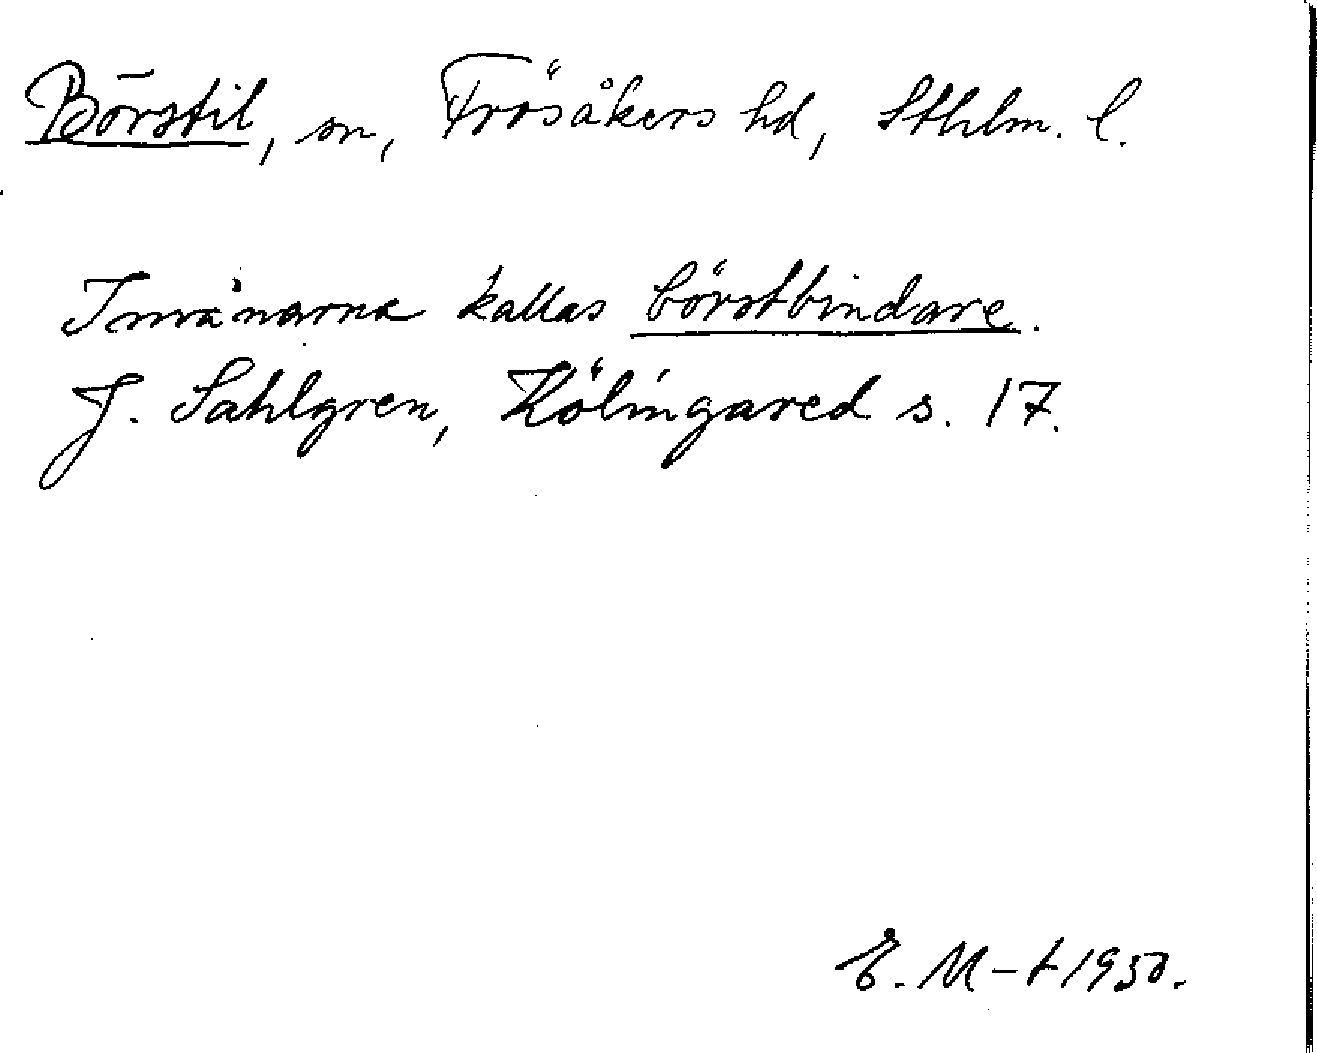 Börstil, sn, Frösåkers hd, Sthlm. l.
Invånarna kallas börstbindare.
J. Sahlgren, Kölingared s. 17.
E. M-t 1950.